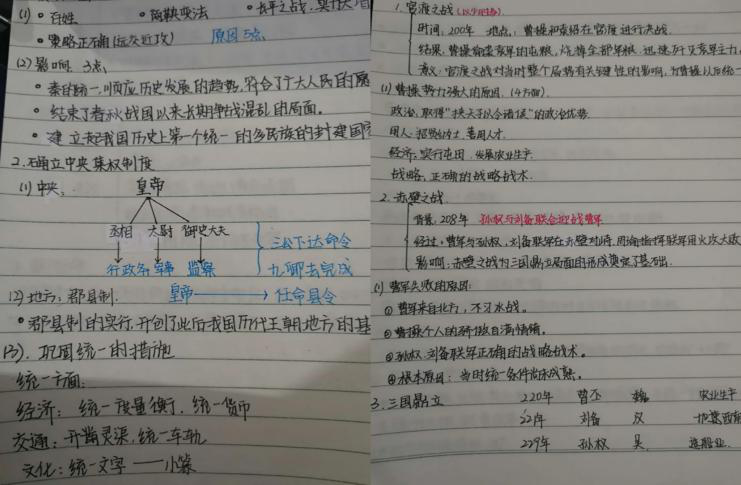 (1) • 百姓 • 商鞅变法 • 长平之战
• 策略正确(远交近攻) 原因5点
(2) 影响 3点
• 秦的统一,顺应历史发展的趋势,符合了广大人民的愿
• 结束了春秋战国以来长期争战混乱的局面。
• 建立起我国历史上第一个统一的多民族的封建国家
2.确立中央集权制度
(1) 中央: 皇帝
丞相 太尉 御史大夫 三公下达命令
行政 军事 监察 九卿去完成
(2) 地方: 郡县制. 皇帝 → 任命县令
• 郡县制的实行,开创了此后我国历代王朝地方的基
(3). 巩固统一的措施
统一方面:
经济: 统一度量衡, 统一货币
交通: 开凿灵渠, 统一车轨
文化: 统一文字 —— 小篆
1.官渡之战(以少胜多)
时间: 200年 地点: 曹操和袁绍在官渡进行决战.
结果: 曹操偷袭袁军的屯粮, 烧掉全部军粮, 迅速歼灭袁军主力
意义: 官渡之战对当时整个局势有关键性的影响, 为曹操以后统一
(1) 曹操势力强大的原因. (4方面).
政治: 取得"挟天子以令诸侯"的政治优势.
用人: 招贤纳士, 善用人才.
经济: 实行屯田, 发展农业生产.
战略: 正确的战略战术.
2. 赤壁之战
背景: 208年 孙权与刘备联合迎战曹军
经过: 曹军与孙权、刘备联军在赤壁对峙, 周瑜指挥联军用火攻大败
影响: 赤壁之战为三国鼎立局面的形成奠定了基础.
(1) 曹军失败的原因:
① 曹军来自北方, 不习水战。
② 曹操个人的骄傲自满情绪。
③ 孙权、刘备联军正确的战略战术。
④ 根本原因: 当时统一条件尚未成熟。
3. 三国鼎立 220年 曹丕 魏 农业生产
221年 刘备 汉
229年 孙权 吴 造船业.